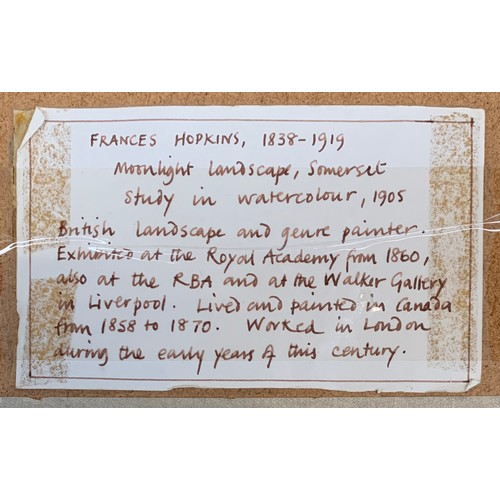 FRANCES HOPKINS, 1838-1919
Moonlight landscape, Somerset
Study in watercolour, 1905
British landscape and genre painter.
Exhibited at the Royal Academy from 1860,
also at the RBA and at the Walker Gallery
in Liverpool. Lived and painted in Canada
from 1858 to 1870. Worked in London
during the early years of this century.